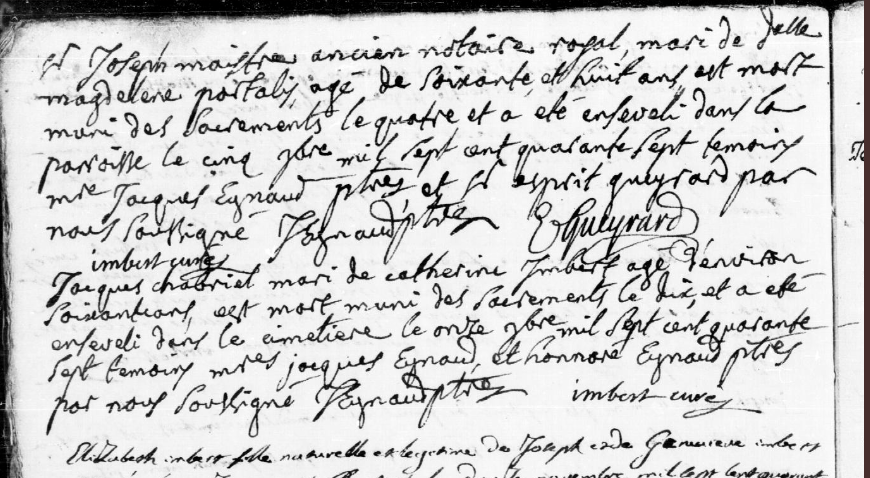 sr Joseph maistre ancien notaire royal, mari de dlle
magdelene portaly, agé de soixante, et huit ans, est mort
muni des sacrements le quatre et a eté enseveli dans la
parroisse le cinq 9bre mil sept cent quarante sept temoins
mre Jacques Eynaud ptres et sr esprit gueyrard par
nous soussigné J Eynaud ptre E Gueyrard
imbert curé
Jacques chabriel mari de catherine Imbert agé d'environ
soixantans, est mort muni des sacrements le dix, et a eté
enseveli dans le cimetiere le onze 9bre mil sept cent quarante
sept temoins mres jacques Eynaud, et honnoré Eynaud ptres
par nous soussigné J Eynaud ptre imbert curé
Elizabeth imbert fille naturelle et legitime de Joseph et de Genevieve imbert
novembre mil sept cent quarant